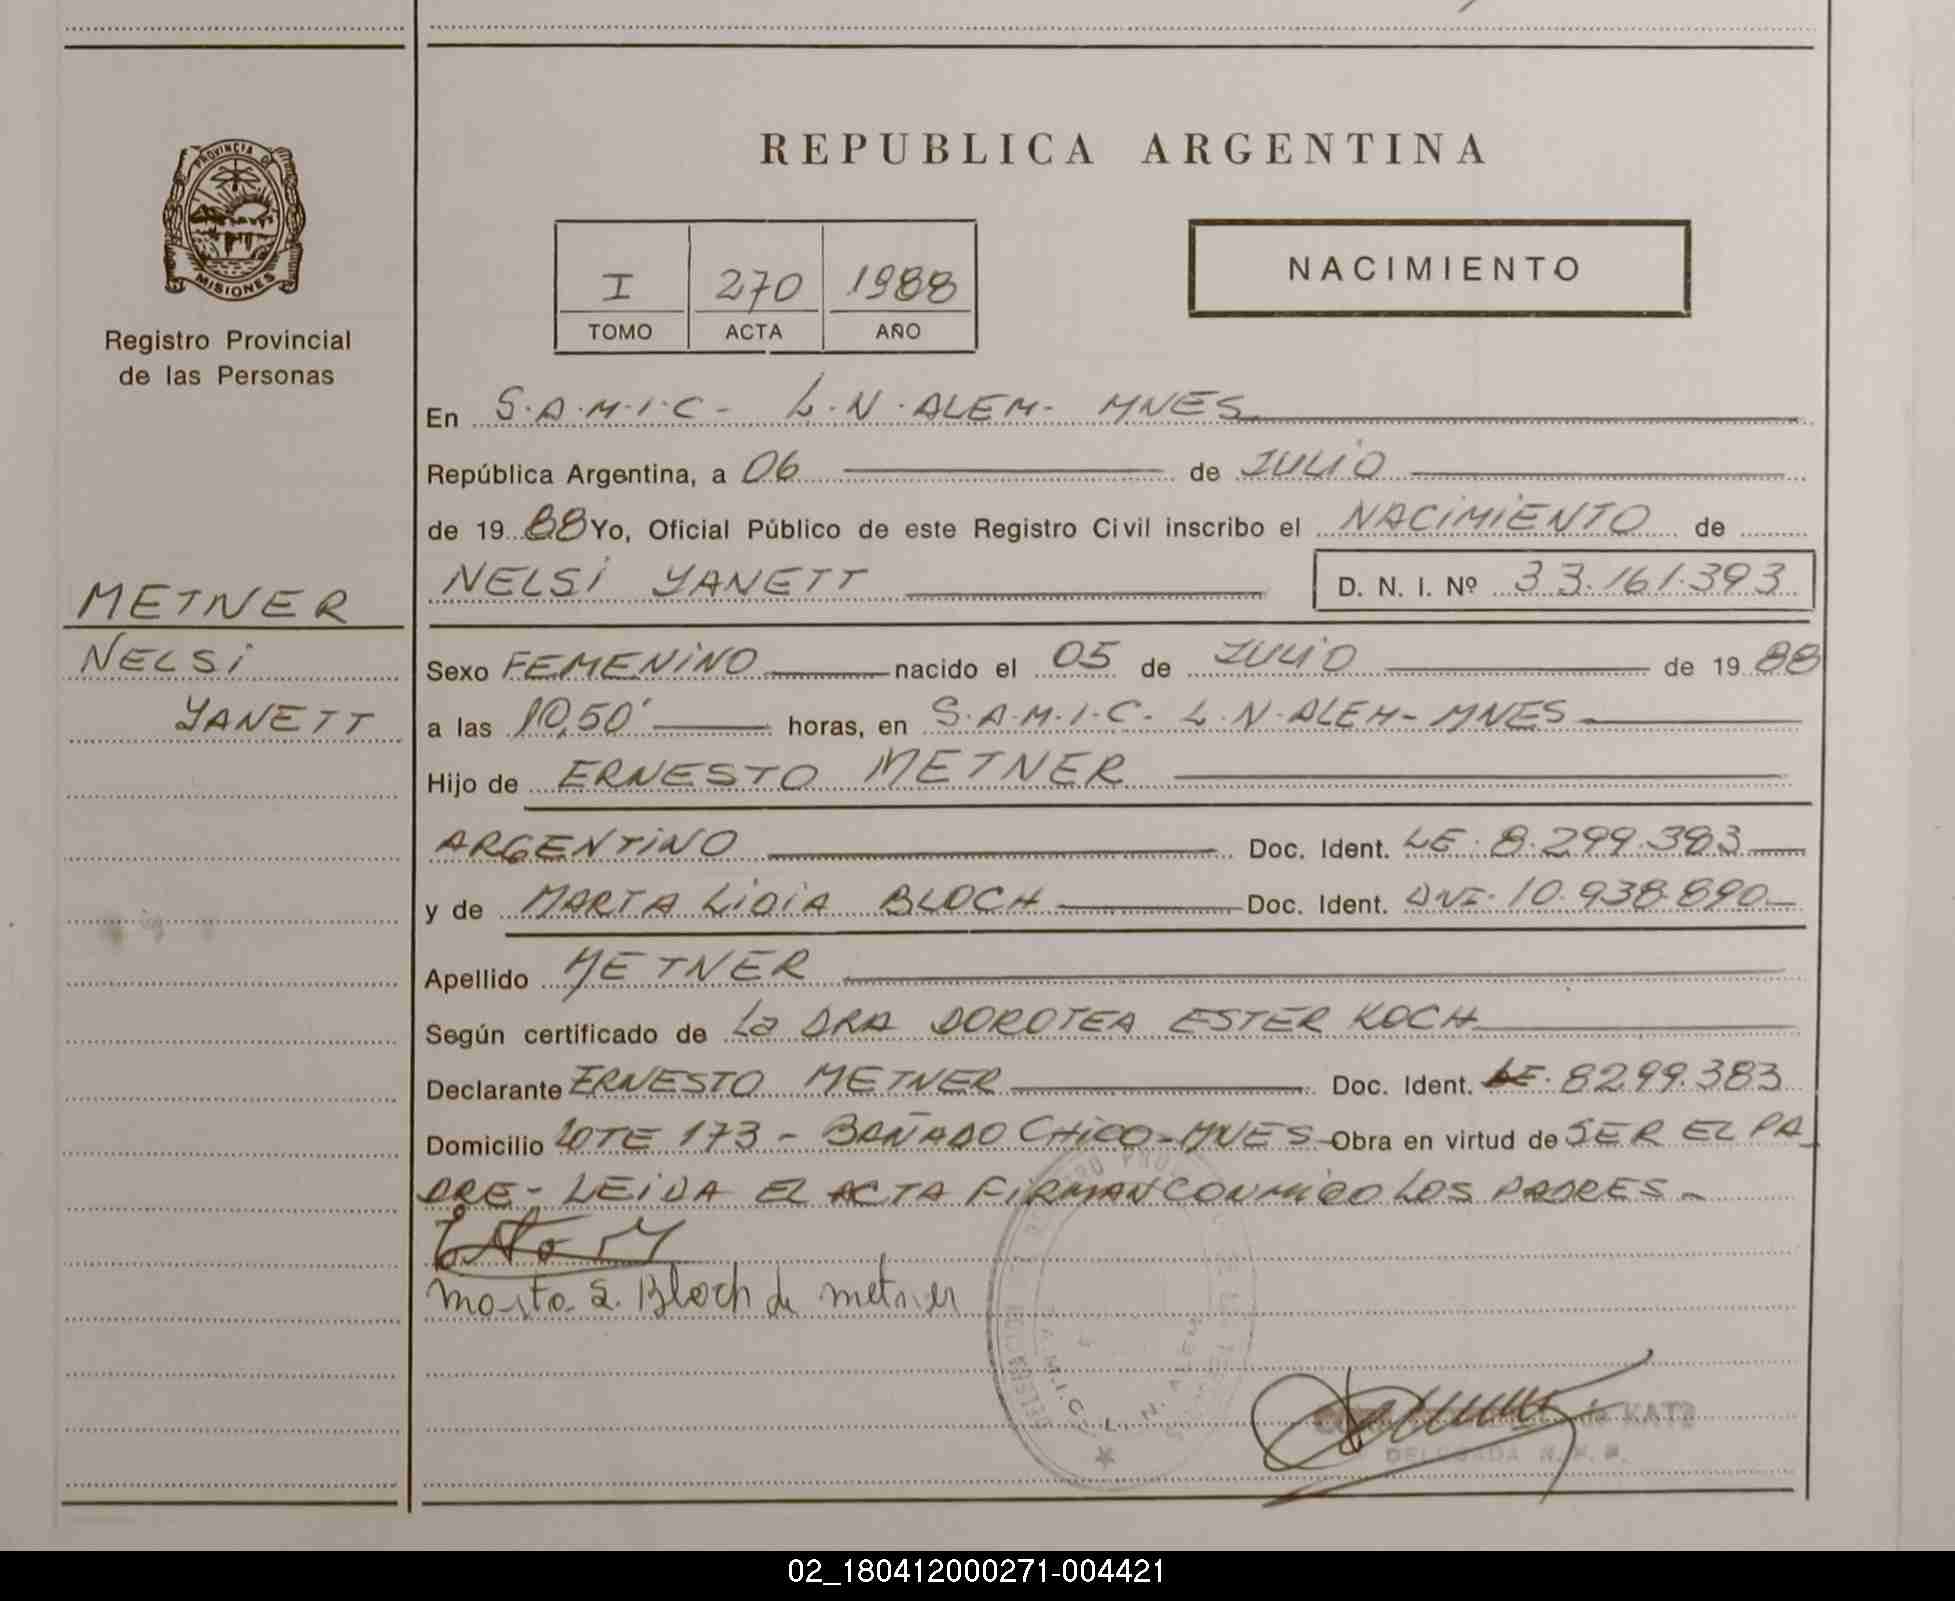 REPUBLICA ARGENTINA
PROVINCIA DE
MISIONES
Registro Provincial
de las Personas
I 270 1988
TOMO ACTA AÑO
NACIMIENTO
En S.A.M.I.C- L.N.ALEM- MNES
República Argentina, a 06 de JULIO
de 19 88 Yo, Oficial Público de este Registro Civil inscribo el NACIMIENTO de
METNER
NELSI
YANETT
NELSI YANETT D. N. I. Nº 33.161.393
Sexo FEMENINO nacido el 05 de JULIO de 19 88
a las 10,50' horas, en S.A.M.I.C- L.N.ALEM- MNES
Hijo de ERNESTO METNER
ARGENTINO Doc. Ident. LE. 8.299.383
y de MARTA LIDIA BLOCH Doc. Ident. DNI. 10.938.890
Apellido METNER
Según certificado de La DRA DOROTEA ESTER KOCH
Declarante ERNESTO METNER Doc. Ident. LE. 8299.383
Domicilio LOTE 173 - BAÑADO CHICO - MNES Obra en virtud de SER EL PA
DRE - LEIDA EL ACTA FIRMAN CONMIGO LOS PADRES -
Marta L. Bloch de metner
S.A.M.I.C. L. N. ALEM
DELEGADA R.P.P.
02_180412000271-004421